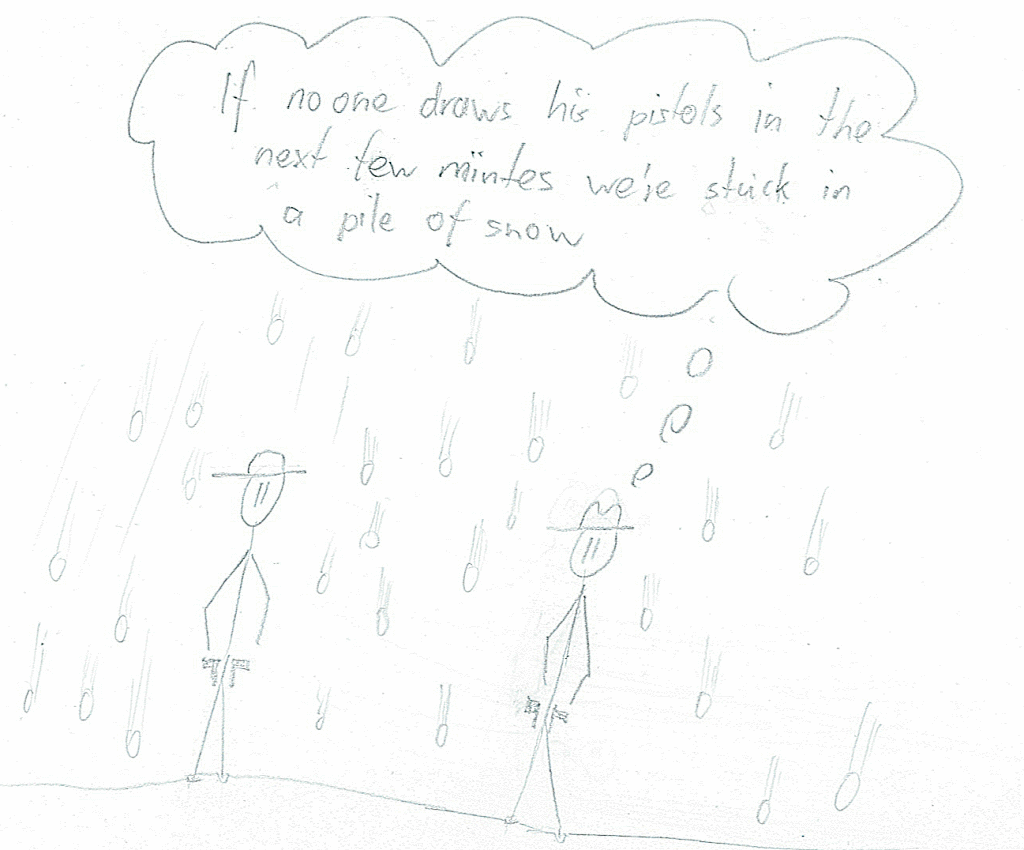 If no one draws his pistols in the
next few mintes we're stuck in
a pile of snow